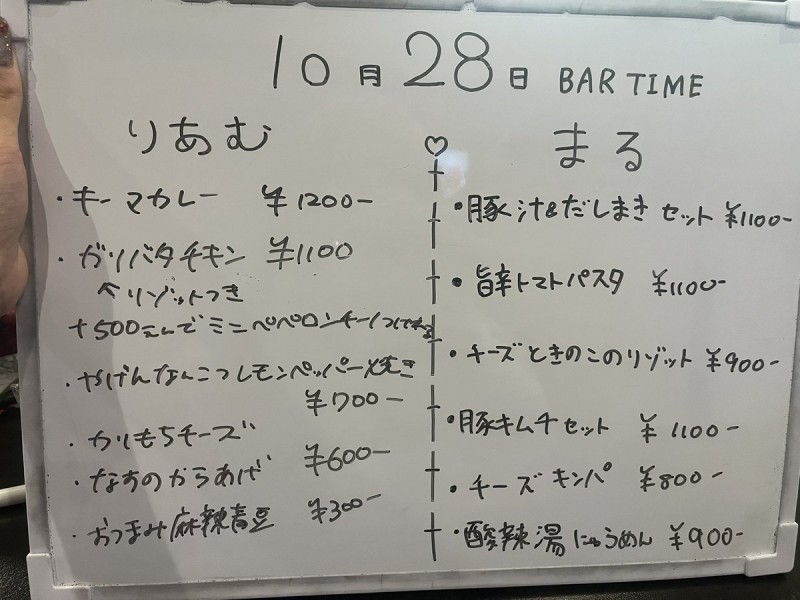 10月28日 BAR TIME
りあむ
・キーマカレー ¥1200-
・ガリバタチキン ¥1100
↖リゾットつき
+500えんでミニペペロンチーノつけれる
・やげんなんこつレモンペッパー焼き
¥700-
・カリもちチーズ
¥600-
・なすのからあげ
・おつまみ麻辣青豆 ¥300-
♡
まる
・豚汁&だしまきセット ¥1100-
・旨辛トマトパスタ ¥1100-
・チーズときのこのリゾット ¥900-
・豚キムチセット ¥1100-
・チーズキンパ ¥800-
・酸辣湯にゅうめん ¥900-